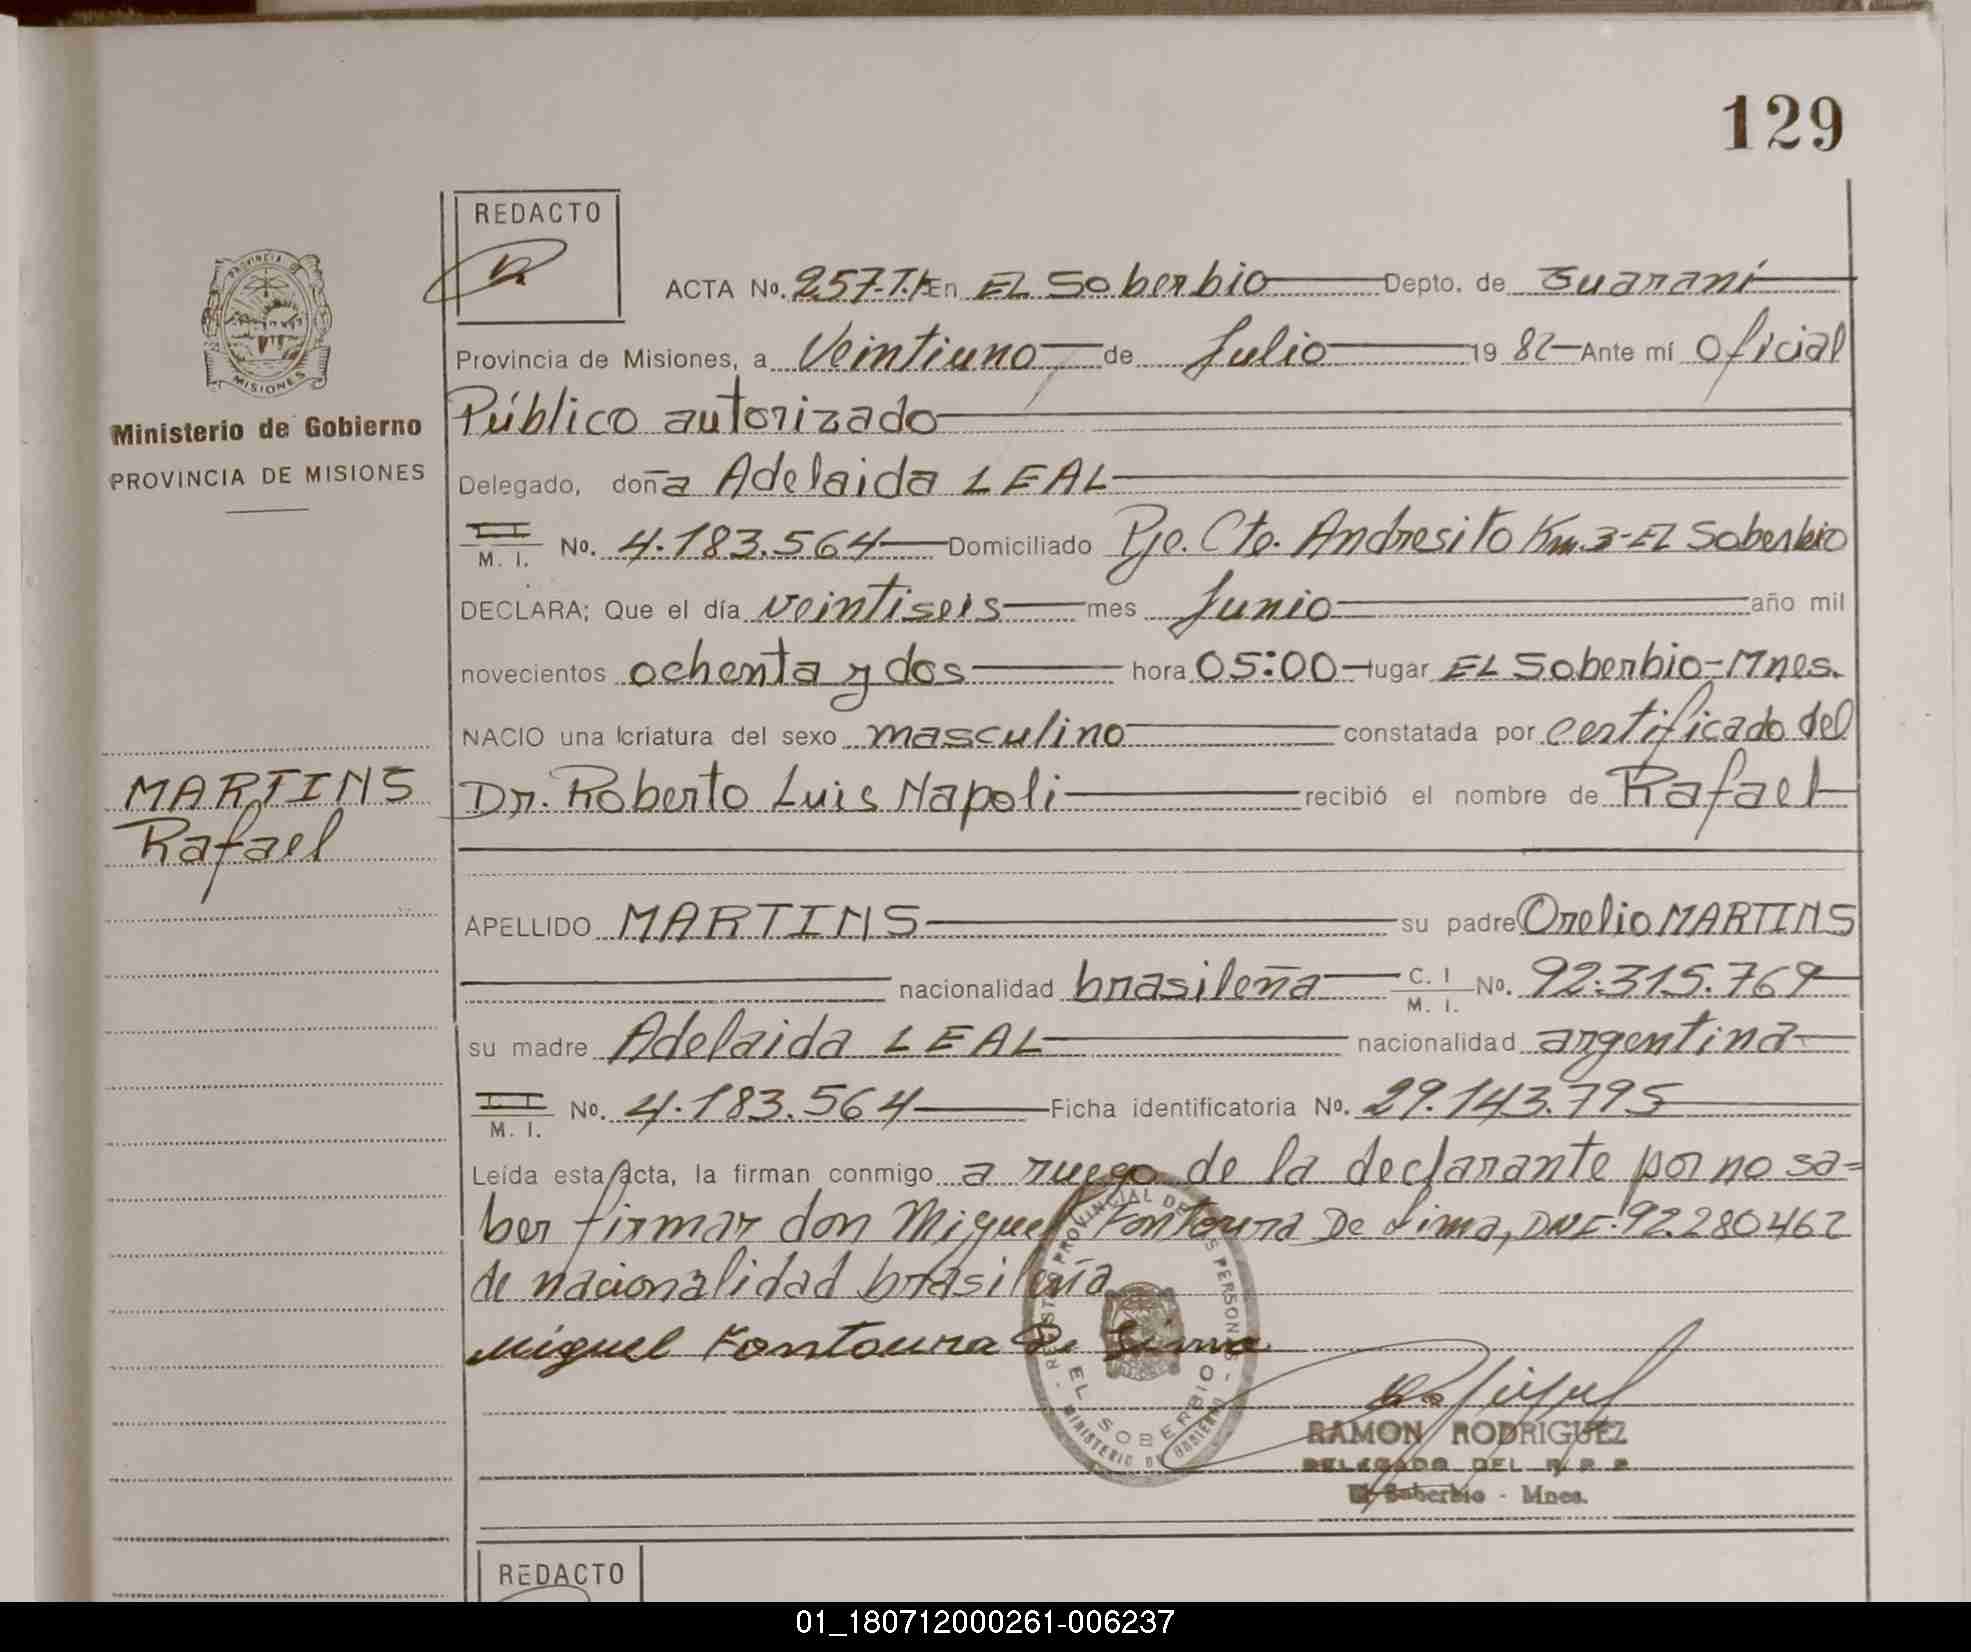 129
REDACTO
PROVINCIA DE
MISIONES
Ministerio de Gobierno
PROVINCIA DE MISIONES
ACTA No. 257-T.I- En EL Soberbio Depto. de Guaraní
Provincia de Misiones, a Veintiuno de Julio 19 82 Ante mí Oficial
Público autorizado
Delegado, doña Adelaida LEAL
M. I. No. 4.183.564 Domiciliado Pje. Cte. Andresito Km.3-EL Soberbio
DECLARA; Que el día veintiseis mes Junio año mil
novecientos ochenta y dos hora 05:00 lugar EL Soberbio-Mnes.
NACIO una criatura del sexo masculino constatada por certificado del
Dr. Roberto Luis Napoli recibió el nombre de Rafael
MARTINS
Rafael
APELLIDO MARTINS su padre Orelio MARTINS
nacionalidad brasileña C. I M. I. No. 92.315.769
su madre Adelaida LEAL nacionalidad argentina
M. I. No. 4.183.564 Ficha identificatoria No. 29.143.795
Leída esta acta, la firman conmigo a ruego de la declarante por no sa=
ber firmar don Miguel Fontoura De Lima, DNI. 92.280462
de nacionalidad brasileña
Miguel Fontoura De Lima
REGISTRO PROVINCIAL DE LAS PERSONAS
EL SOBERBIO
MINISTERIO DE GOBIERNO
RAMON RODRIGUEZ
DELEGADO DEL R. P. P.
El Soberbio - Mnes.
REDACTO
01_180712000261-006237